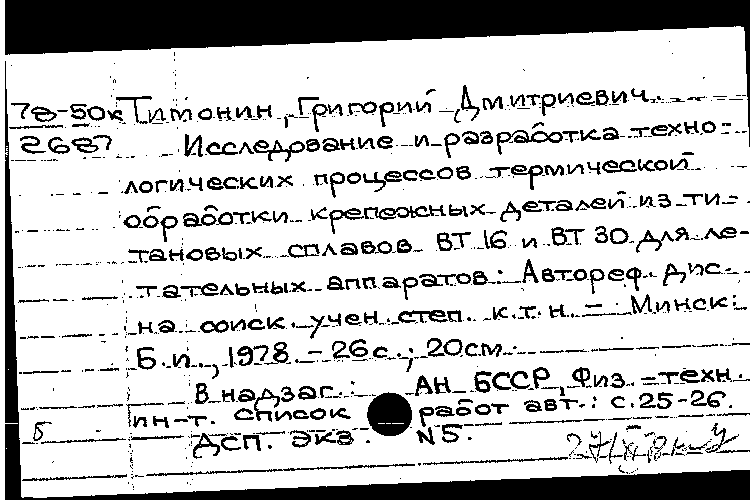 78-50к Тимонин, Григорий Дмитриевич.
2687 Исследование и разработка техно-
логических процессов термической
обработки крепежных деталей из ти-
тановых сплавов ВТ 16 и ВТ 30 для ле-
тательных аппаратов: Автореф. дис.
на соиск. учен. степ. к.т.н. – Минск:
Б.и., 1978. – 26с.; 20см.
В надзаг.: АН БССР, Физ.-техн.
ин-т. Список работ авт.: с.25-26.
Б ДСП. Экз. N5.